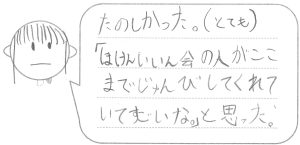 たのしかった。(とても)
「ほけんいいん会の人がここ
までじゅんびしてくれて
いてすごいな。」と思った。